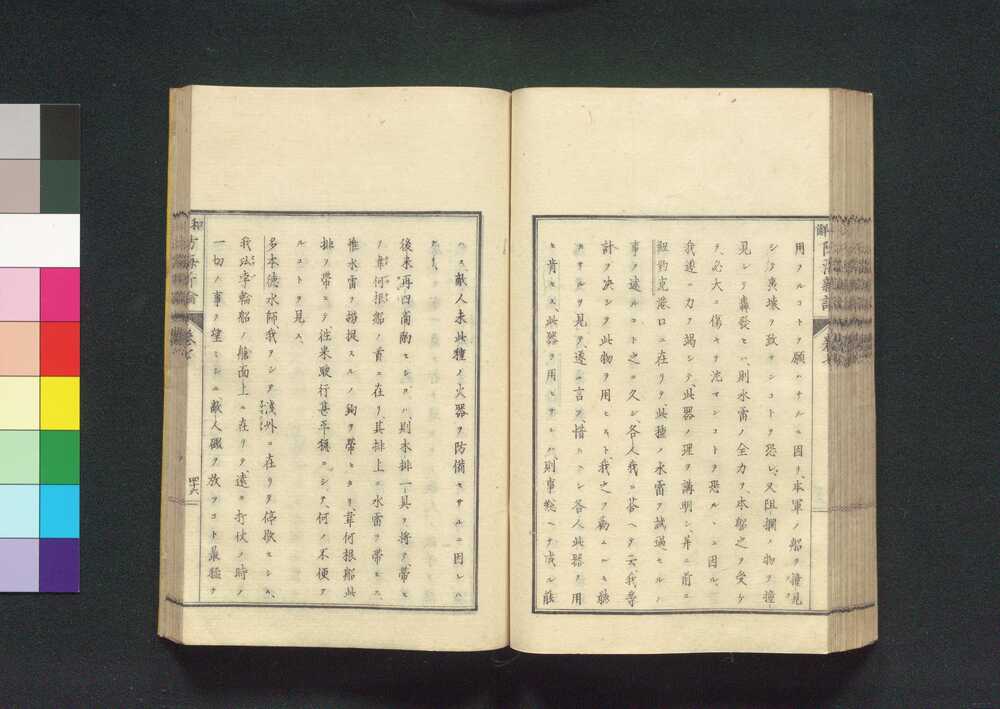 用フルコトヲ願ハサルニ因リ、本軍ノ船ヲ撞見
シテ夷壊ヲ致サンコトヲ恐レ、又阻攔ノ物ヲ撞
見シテ轟發セハ、則水雷ノ全力ヲ、本船之ヲ受ケ
ヲ、必大ニ傷キヲ沈マンコトヲ恐ルヽニ因ル、
我遂ニ力ヲ竭シテ、此器ノ理ヲ講明シ、并ニ前ニ
紐約克港口ニ在リテ、此種ノ水雷ヲ試過セルノ
事ヲ述ルコト之ヲ久シ、各人我ニ荅ヘテ云、我等
計ヲ決シテ此物ヲ用ヒス、我之ヲ勸ムルモ聽
カサルヲ見テ、遂ニ言フ惜ムヘシ各人此器ヲ用
ヒ肯セス、此器ヲ用ヒサレハ、則事
ハス、敵人未此種ノ火器ヲ防備セサルニ因レハ
ナリ、
後来再四商酌セシカハ、則木排一具ヲ将テ、帶ヒ
テ韋何根船ノ首ニ在リ、其排上ニ水雷ヲ帶ヒス、
惟水雷ヲ撈捉スルノ鉤ヲ帶ヒタリ、韋何根船此
排ヲ帶ヒテ、往来駛行甚平穏ニシテ、何ノ不便ヲ
ルコトヲ見ス、
多本德水師、我ヲシテ淺外ニ在リテ停歇セシム、
我坐輪船ノ艙面上ニ在リテ、遠ク打仗ノ時ノ
一切ノ事ヲ望ミシニ敵人礮ヲ放ツコト最猛ク
四十六